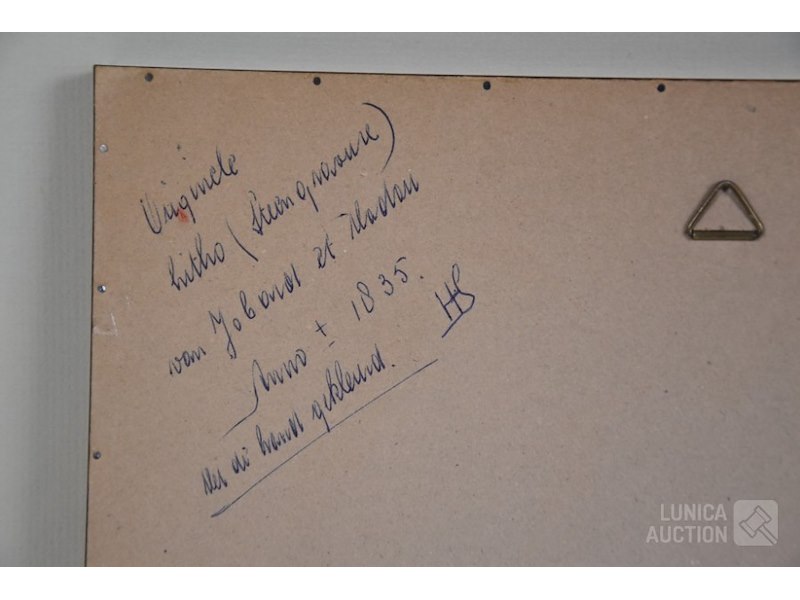 Originele
Litho (Steengravure)
van Jobard et Madou
Anno ± 1835.
HB
Met de hand gekleurd.
LUNICA
AUCTION